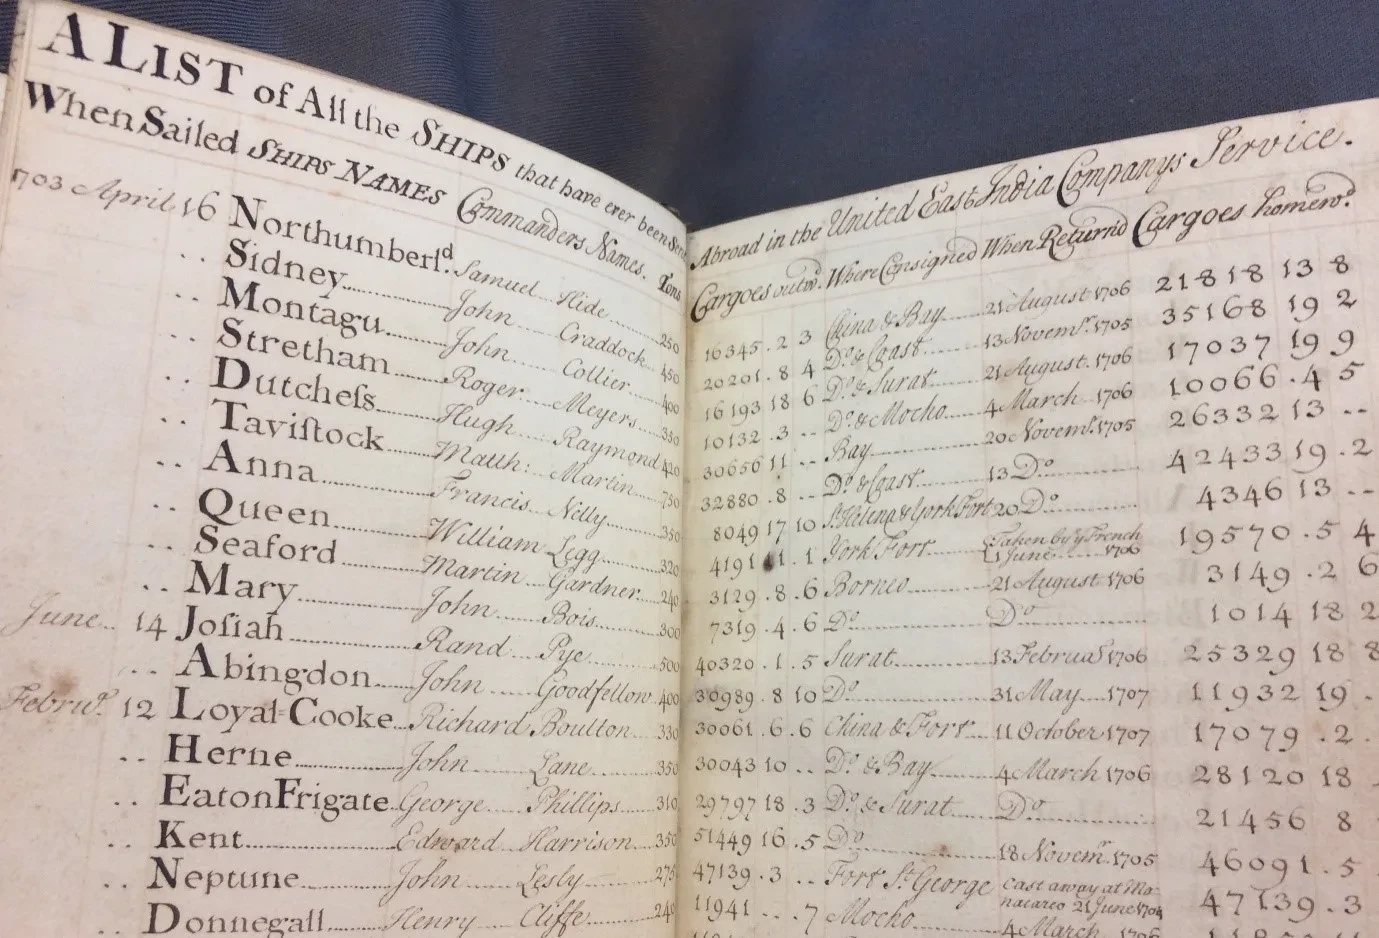 A LIST of All the SHIPS that have ever been Sent
When Sailed SHIPS NAMES Commanders Names. Tons
1703 April 16 Northumberld. Samuel Hide 250
.. Sidney John Craddock 450
.. Montagu John Collier 400
.. Stretham Roger Meyers 350
.. Dutcheſs Hugh Raymond 420
.. Taviſtock Matth: Martin 750
.. Anna Francis Nelly 350
.. Queen William Legg 320
.. Seaford Martin Gardner 240
.. Mary John Bois 300
June 14 Joſiah Rand Pye 500
.. Abingdon John Goodfellow 400
Febru. 12 Loyal Cooke Richard Boulton 330
.. Herne John Lane 350
.. Eaton Frigate George Phillips 310
.. Kent Edward Harrison 350
.. Neptune John Lesly 275
.. Donnegall Henry Cliffe 240
Abroad in the United East India Companys Service.
Cargoes outw. Where Consigned When Return'd Cargoes homew.
16345 . 2 3 China & Bay 21 August 1706 21818 13 8
20201 . 8 4 Do. & Coast 13 Novemr. 1705 35168 19 2
16193 18 6 Do. & Surat 21 August 1706 17037 19 9
10132 . 3 .. Do. & Mocho 4 March 1706 10066 . 4 5
30656 11 .. Bay 20 Novemr. 1705 26332 13 ..
32880 . 8 .. Do. & Coast 13 Do 42433 19 . 2
8049 17 10 St. Helena & York Fort 20 Do 4346 13 ..
4191 . 1 York Fort Taken by ye French
June 1706 19570 . 5 4
3129 . 8 . 6 Borneo 21 August 1706 3149 . 2 6
7319 . 4 . 6 Do Do 1014 18 2
40320 . 1 . 5 Surat 13 Februa 1706 25329 18 8
36989 . 8 10 Do 31 May 1707 11932 19 .
30061 . 6 . 6 China & Fort 11 October 1707 17079 . 2 .
30043 10 .. Do. & Bay 4 March 1706 28120 18
29797 18 . 3 Do. & Surat Do 21456 8
51449 16 . 5 Do 18 Novemr. 1705 46091 . 5
47139 . 3 .. Fort St. George Cast away at Mo-
nacareo 21 June 1704 47139 . 3
11941 .. . 7 Mocho 4 March 1706